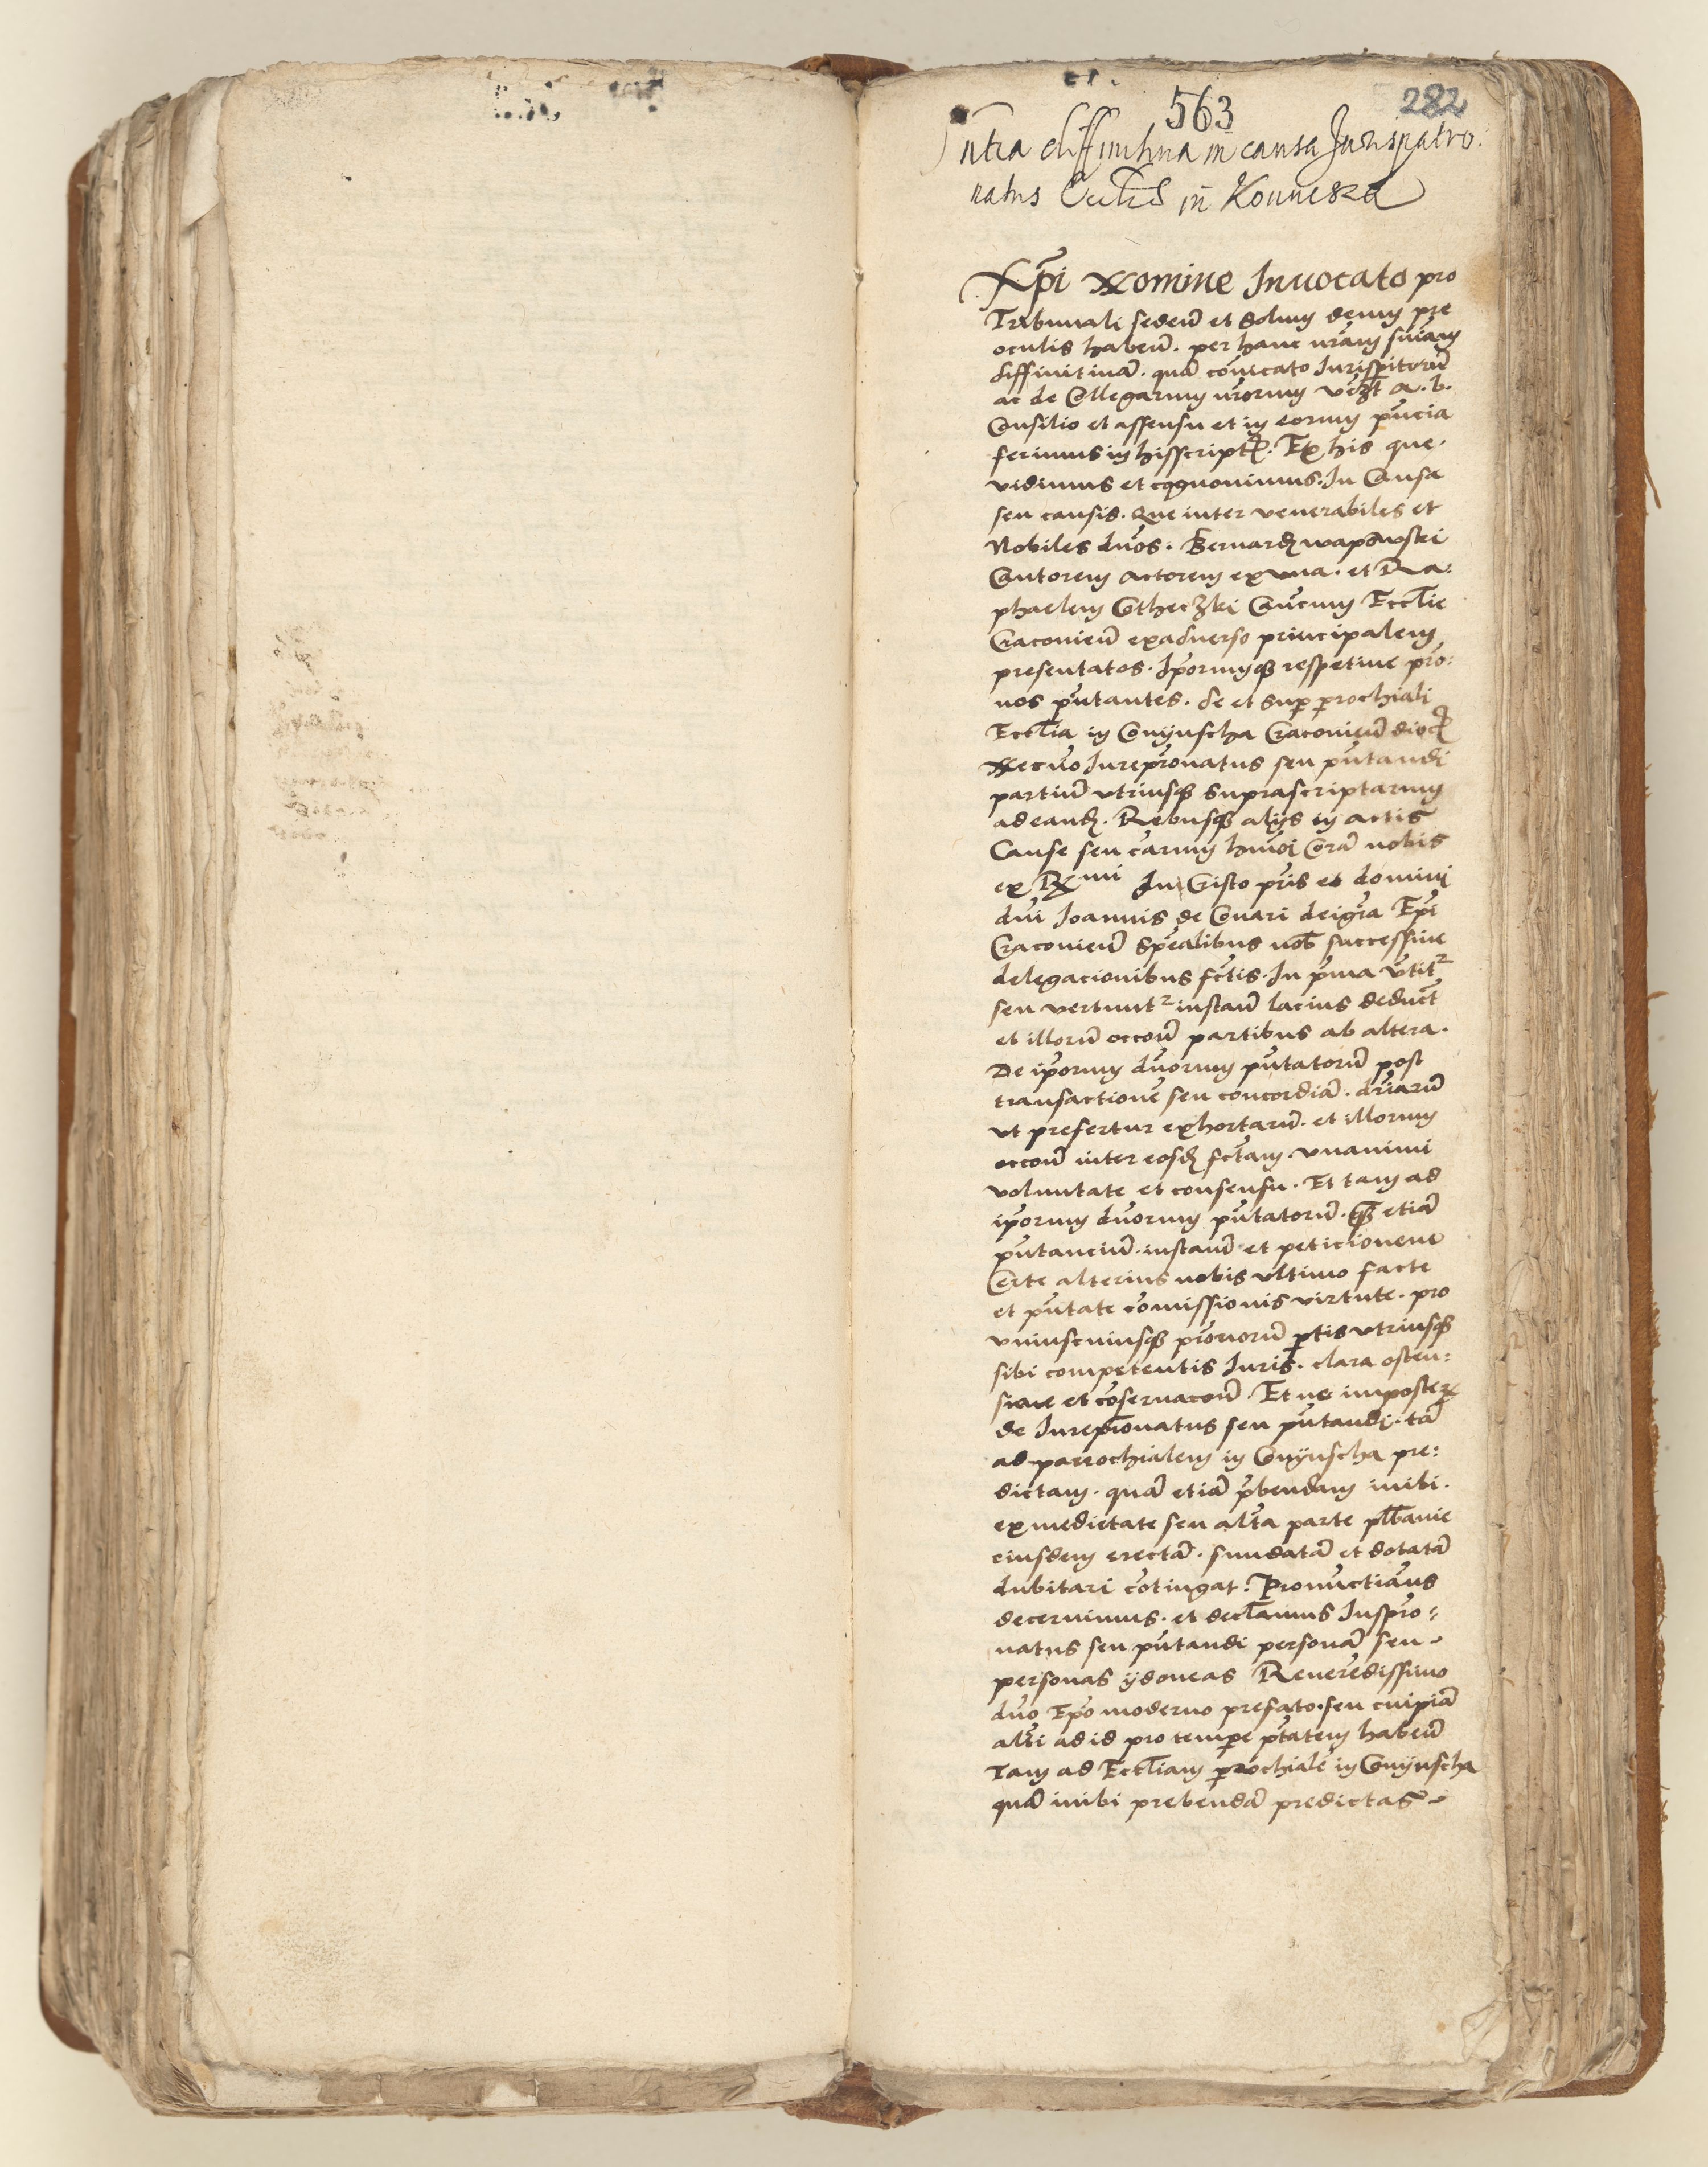 563
282
Sn̄tia diffinitiua in causa Jurispatro:
natus Eccl̄ie in Koniuska
Xp̄i Nomine Inuocato pro
Tribunali seden̄ et Solum deum pre
oculis haben̄. per hanc n̄ram sn̄iam
diffinitiuā. quā co͞icato Jurisp̱itorū
ac de Collegarum n̄rorum v̄ez̄t a. b.
Consilio et assensu et in eorum pn̄cia
ferimus in hisscriptꝭ. Ex his que.
vidimus et cognouimus. In Causa
seu causis. Que inter venerabiles et
Nobiles dn̄os. Bernardꝭ wapowski
Cantorem actorem ex vna. et Ra:
phaelem Gtheczki Cān̄cum Eccl̄ie
Cracouien̄ exaduerso principalem
presentatos. Ip̄orumqꝫ respetiue pro:
nos pn̄tantes. de et sup̱ p̱rochiali
Eccl̄ia in Conynscha Cracouien̄ dioc̄
Necn̄o Jurepro̅natus seu pn̄tandi
partiū vtriusqꝫ suprascriptarum
ad eandꝭ. Rebusqꝫ alijs in actis
Cause seu caru̅m hmōi Corā nobis
ex Rmi In Cristo pr̄is et domini
dn̄i Joannis de Conari dei gr̄a Ep̄i
Cracouien̄ sp̄ealibus nob̄ successiue
delegacionibus fc̄tis. In p̄ma v̄titr
seu vertuntr instan̄ lacius deduc̄t
et illorū occon̄ partibus ab altera.
De ip̄orum dn̄orum pn̄tatorū post
transactionē seu concordiā. dn̄iarū
vt prefertur exhortarū. et illorum
occon̄ inter eosdꝭ fc̄tam. vnanimi
voluntate et consensu. Et tam ad
ip̄orum dn̄orum pn̄tatorū. qꝫ etiā
pn̄tanciū. instan̄ et peticionem
Certe alterius nobis vltimo facte
et pn̄tate co̅missionis virtute. pro
vniuscuiusqꝫ pro̅norū p̱tis vtriusqꝫ
sibi competentis Iuris. clara osten:
sione et co̅seruacon̄. Et ne imposteꝝ
de Jurepro̅natus seu pn̄tandi. tā
ad parrochialem in Conynscha pre:
dictam. quā etiā p̄bendam inibi.
ex medietate seu alt̄a parte pleb̄anie
eiusdem erectā. fundatā et dotatā
dubitari co̅tingat: Pronu̅ctiaus̄
decernimus. et decl̄amus Juspro̅:
natus seu pn̄tandi personā seu
personas ydoneas Reueredissimo
dn̄o Ep̄o moderno prefato. seu cuipiā
alt̄i ad id pro temp̱e pt̄atem haben̄
Tam ad Eccl̄iam p̱rochialē in Conynscha
quā inibi prebendā predictas